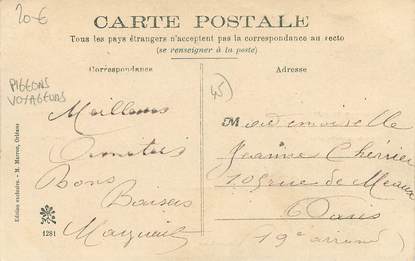 20€
CARTE POSTALE
Tous les pays étrangers n'acceptent pas la correspondance au recto
(se renseigner à la poste)
PIGEONS
VOYAGEURS
Correspondance
Meilleures
Amitiés
Bons
Baisers
Marguerite
Edition exclusive. - M. Marcou, Orléans
1281
Adresse
45
Mademoiselle
Jeanne Chérrier
109 rue de Meaux
Paris
19e arrond